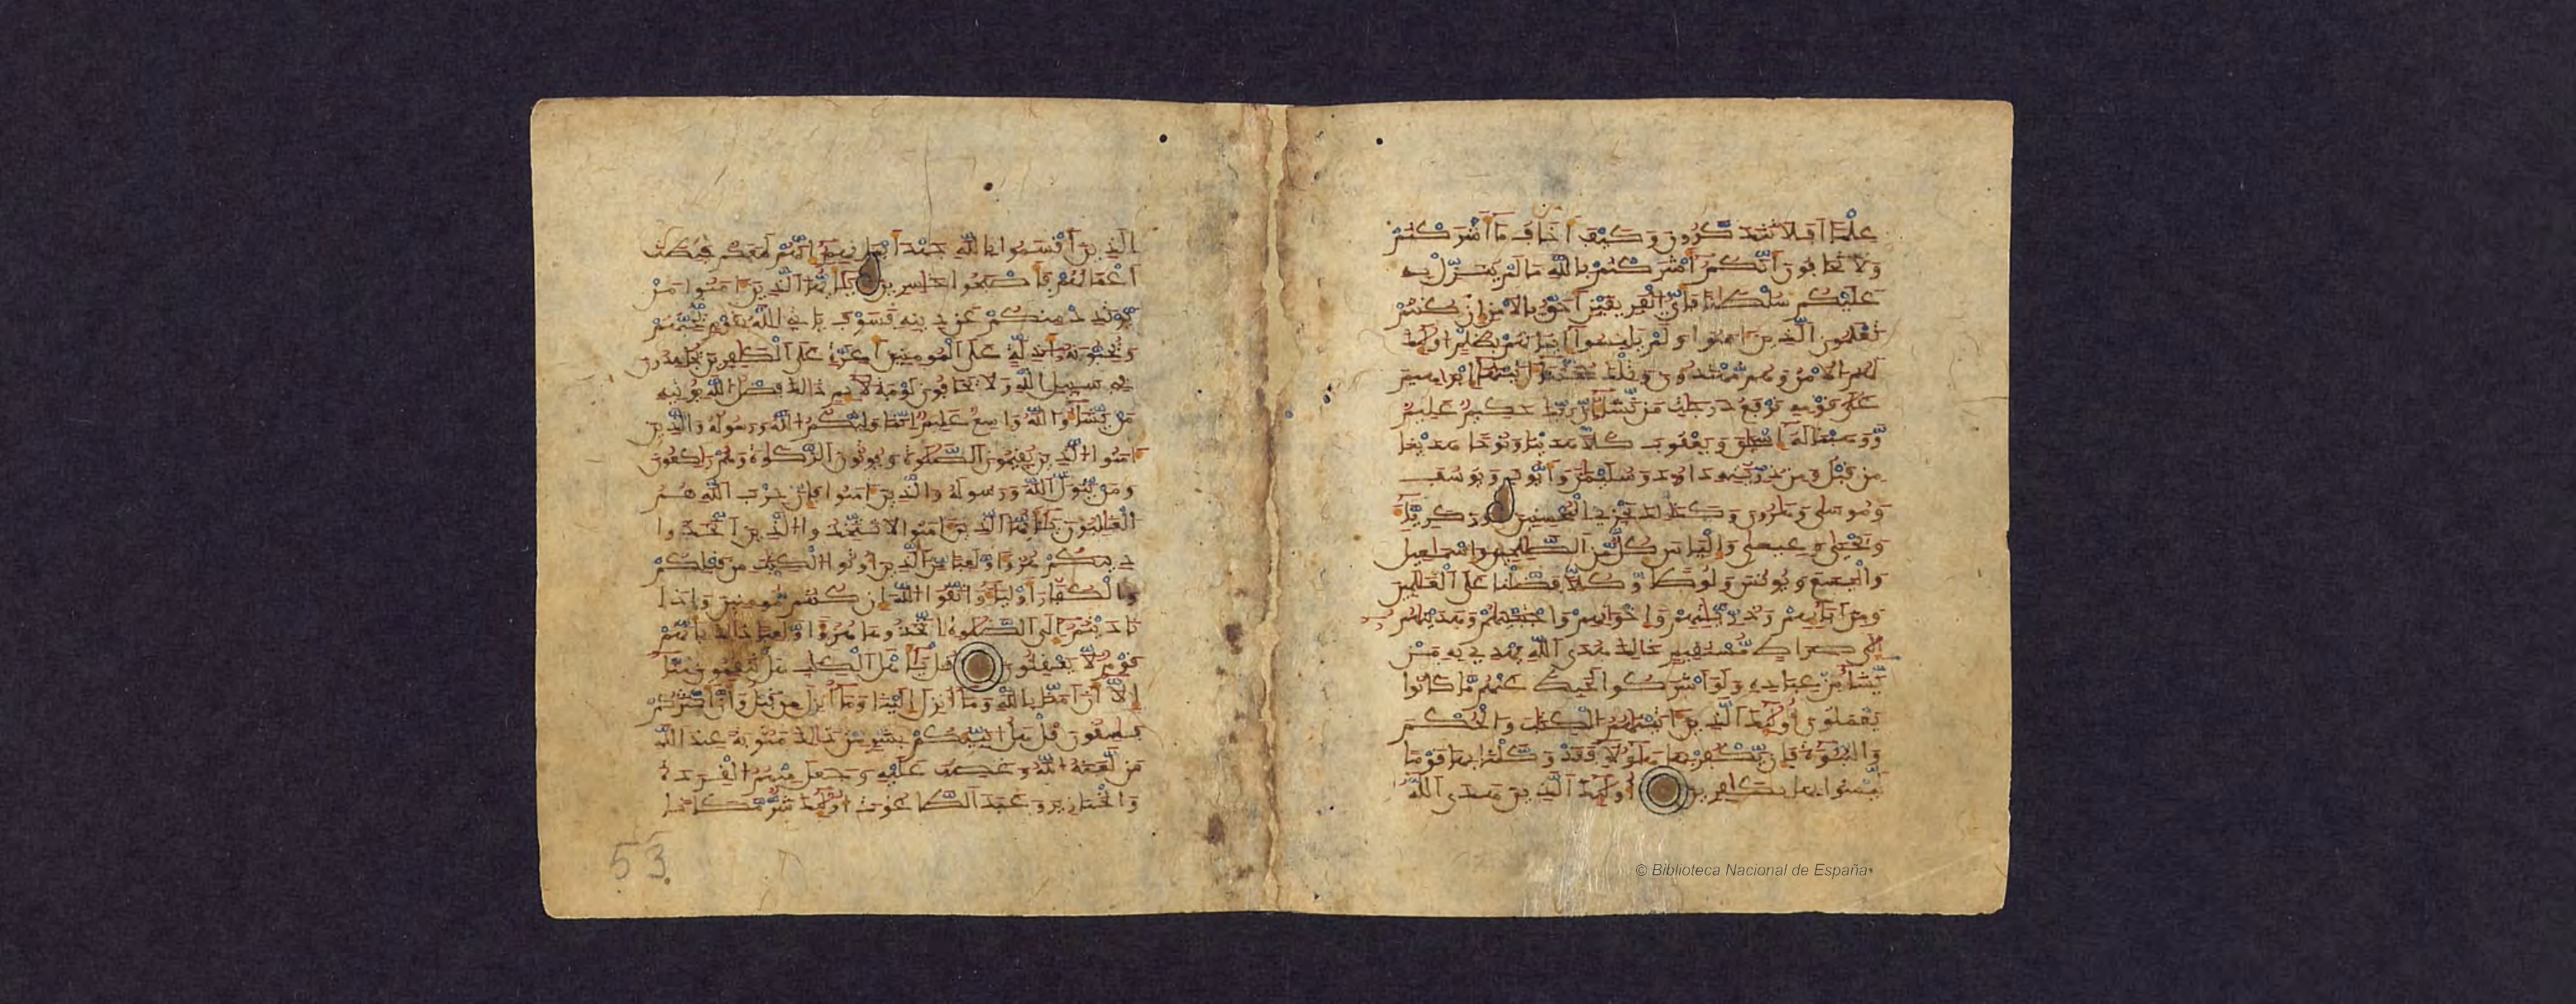 علما افلا تتذكرون وكيف اخاف ما اشركتم
ولا تخافون انكم اشركتم بالله ما لم ينزل به
عليكم سلطانا فاي الفريقين احق بالامن ان كنتم
تعلمون الذين امنوا ولم يلبسوا ايمانهم بظلم اولئك
لهم الامن وهم مهتدون وتلك حجتنا اتينها ابرهيم
على قومه نرفع درجت من نشاء ان ربك حكيم عليم
ووهبنا له اسحق ويعقوب كلا هدينا ونوحا هدينا
من قبل ومن ذريته داود وسليمن وايوب ويوسف
وموسى وهرون وكذلك نجزي المحسنين وزكرياء
ويحيى وعيسى والياس كل من الصلحين واسمعيل
واليسع ويونس ولوطا وكلا فضلنا على العلمين
ومن ابائهم وذريتهم واخوانهم واجتبينهم وهدينهم
الى صراط مستقيم ذلك هدى الله يهدي به من
يشاء من عباده ولو اشركوا لحبط عنهم ما كانوا
يعملون اولئك الذين اتينهم الكتب والحكم
والنبوءة فان يكفر بها هؤلاء فقد وكلنا بها قوما
ليسوا بها بكافرين اولئك الذين هدى الله
الذين اقسموا بالله جهد ايمانهم انهم لمعكم حبطت
اعمالهم فاصبحوا خاسرين يايها الذين امنوا من
يرتدد منكم عن دينه فسوف ياتي الله بقوم يحبهم
ويحبونه اذلة على المومنين اعزة على الكفرين يجهدون
في سبيل الله ولا يخافون لومة لائم ذلك فضل الله يوتيه
من يشاء والله واسع عليم انما وليكم الله ورسوله والذين
امنوا الذين يقيمون الصلوة ويوتون الزكوة وهم راكعون
ومن يتول الله ورسوله والذين امنوا فان حزب الله هم
الغلبون يايها الذين امنوا لا تتخذوا الذين اتخذوا
دينكم هزؤا ولعبا من الذين اوتوا الكتب من قبلكم
والكفار اولياء واتقوا الله ان كنتم مومنين واذا
ناديتم الى الصلوة اتخذوها هزؤا ولعبا ذلك بانهم
قوم لا يعقلون قل ياهل الكتب هل تنقمون منا
الا ان امنا بالله وما انزل الينا وما انزل من قبل وان اكثركم
فسقون قل هل انبئكم بشر من ذلك مثوبة عند الله
من لعنه الله وغضب عليه وجعل منهم القردة
والخنازير وعبد الطاغوت اولئك شر مكانا
53
© Biblioteca Nacional de España